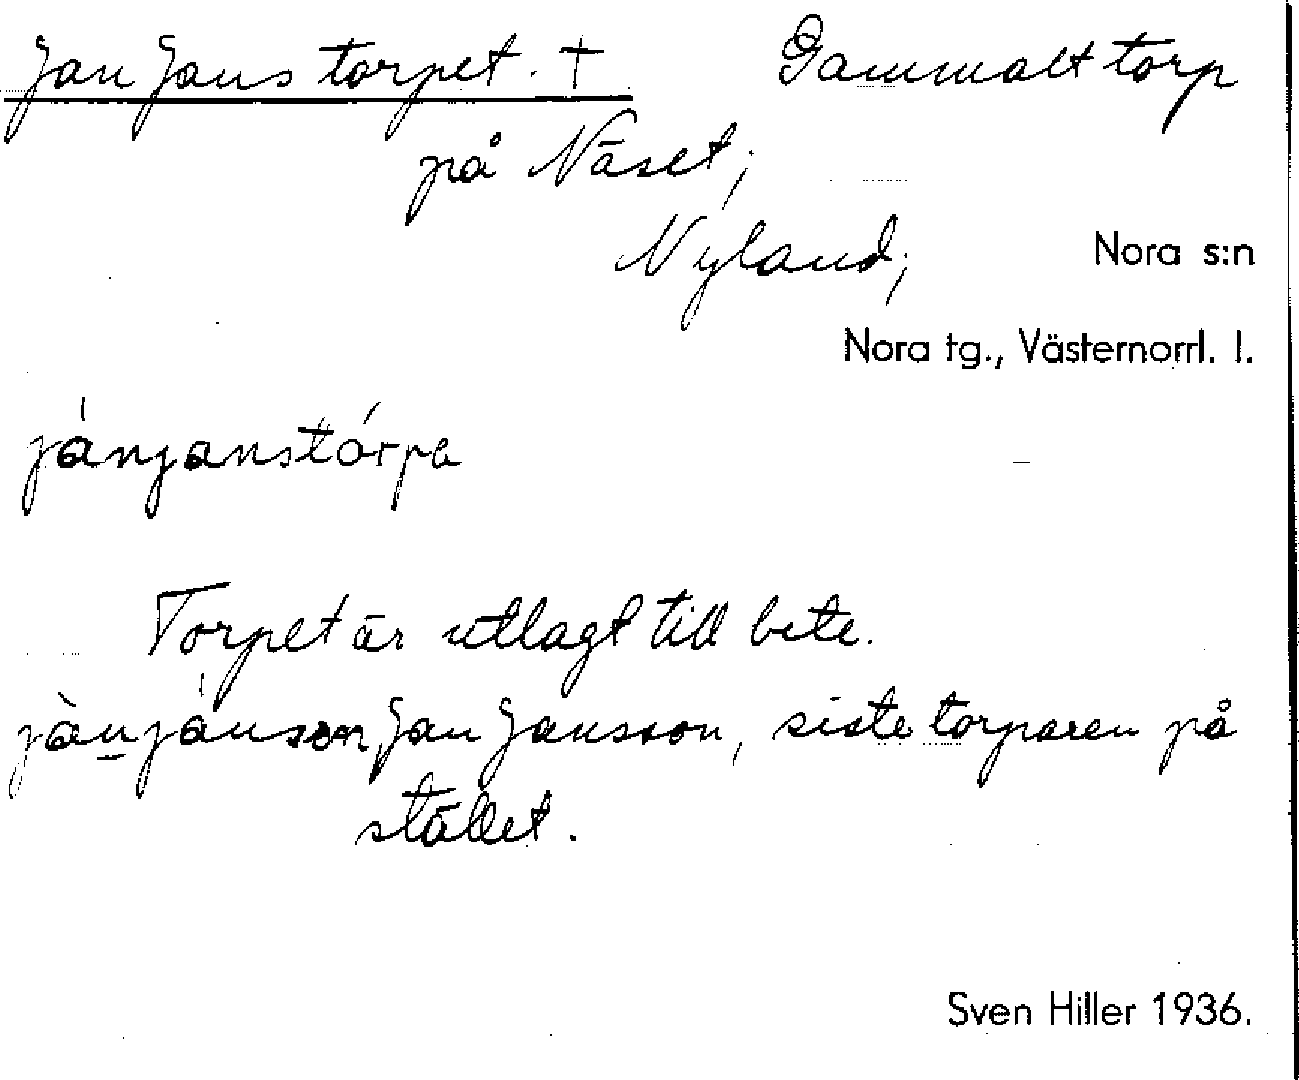 Jan Jans torpet. † Gammalt torp
på Näset,
Nyland, Nora s:n
Nora tg., Västernorrl. l.
jánjanstórpa
Torpet är utlagt till bete.
jànjánson, Jan Jansson, siste torparen på
stället.
Sven Hiller 1936.